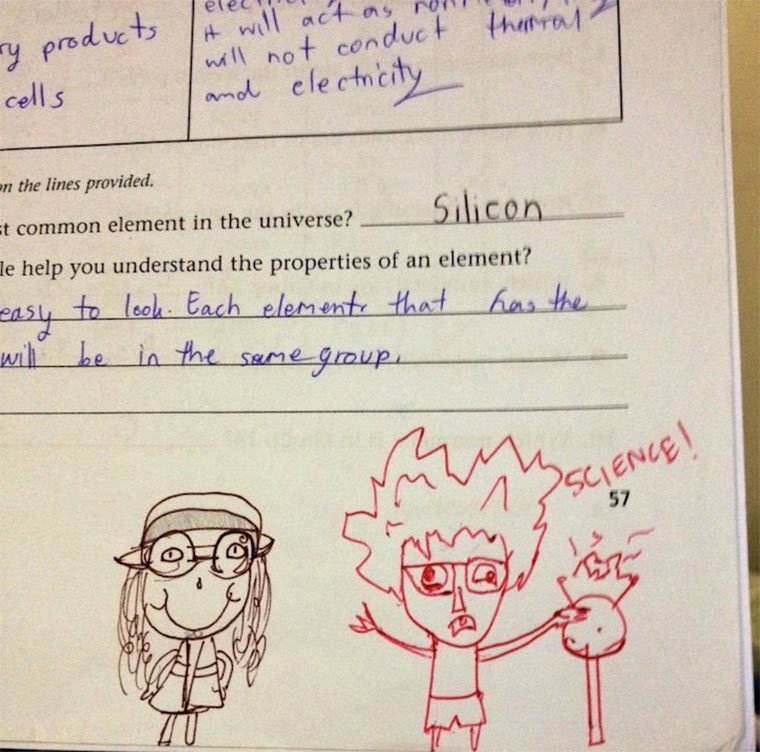 ry products
cells
elect
it will act as
will not conduct thermal
and electricity
on the lines provided.
st common element in the universe? Silicon
le help you understand the properties of an element?
easy to look. Each element that has the
will be in the same group.
SCIENCE!
57